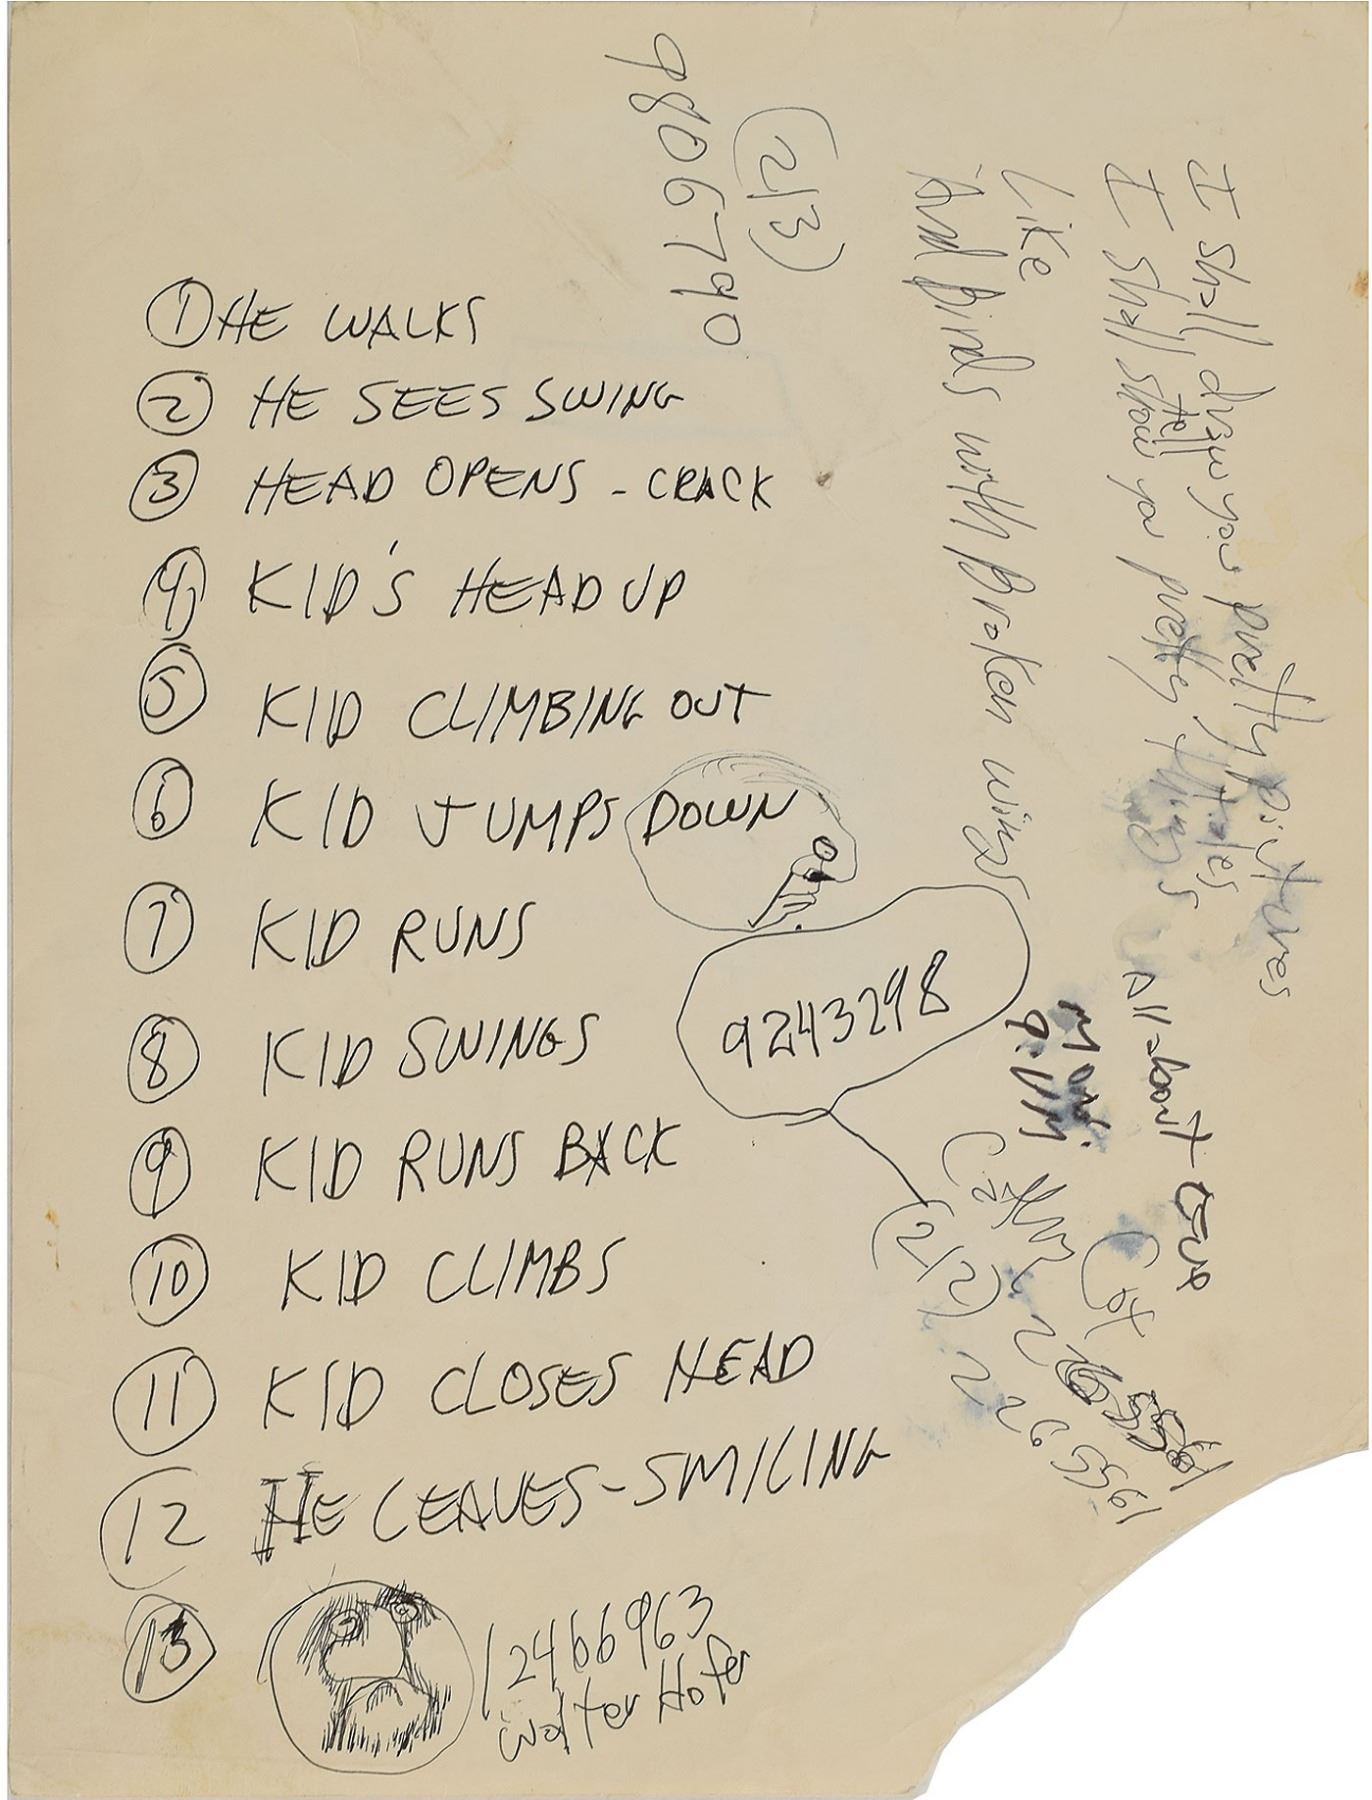 ① HE WALKS
② HE SEES SWING
③ HEAD OPENS - CRACK
④ KID'S HEAD UP
⑤ KID CLIMBING OUT
⑥ KID JUMPS DOWN
⑦ KID RUNS
⑧ KID SWINGS
⑨ KID RUNS BACK
⑩ KID CLIMBS
⑪ KID CLOSES HEAD
⑫ HE LEAVES - SMILING
⑬
12466963
Walter Hofer
(213)
9806790
I shall draw you pretty pictures
I shall show you pretty things
tell tales
All about Eve
Like
And Birds with Broken wings
9243298
(212)
Cathy Cox
2265561